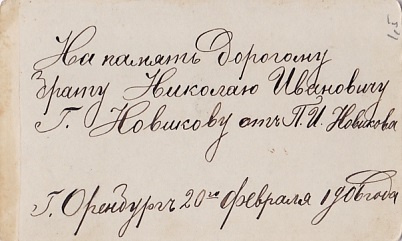 На память Дорогому
Брату Николаю Ивановичу
Г. Новикову отъ П. И. Новикова
Г. Оренбургъ 20го февраля 1906 года
1,5